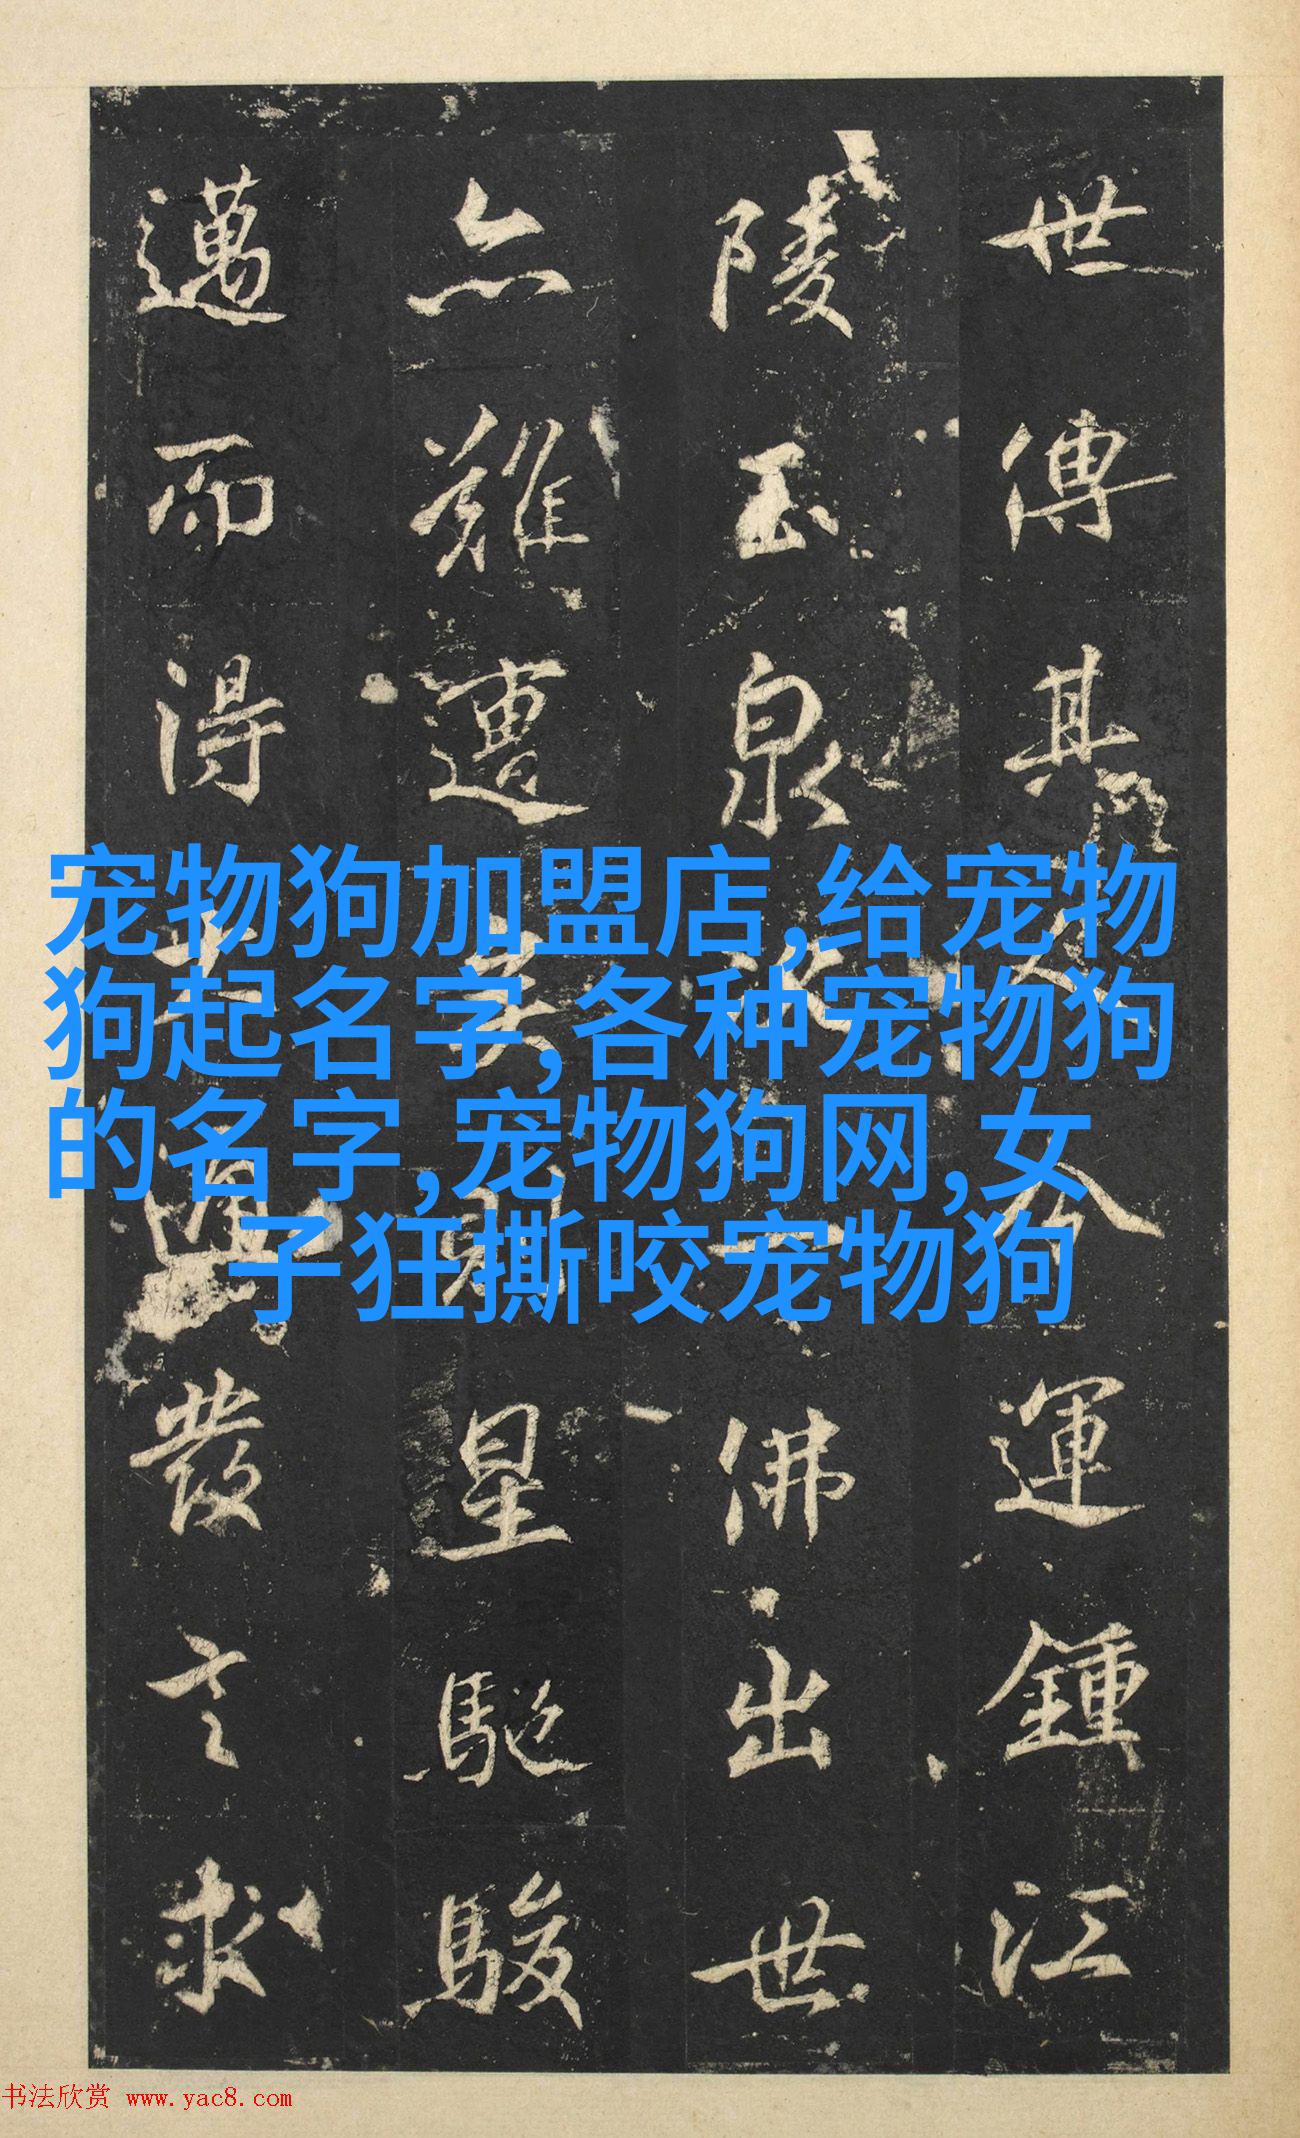 世傳其運鍾江
陵玉泉佛出世
亦難遭星馳駿
邁而得發言求
宠物狗加盟店,给宠物
狗起名字,各种宠物狗
的名字,宠物狗网,女
子狂撕咬宠物狗
书法欣赏 www.yac8.com